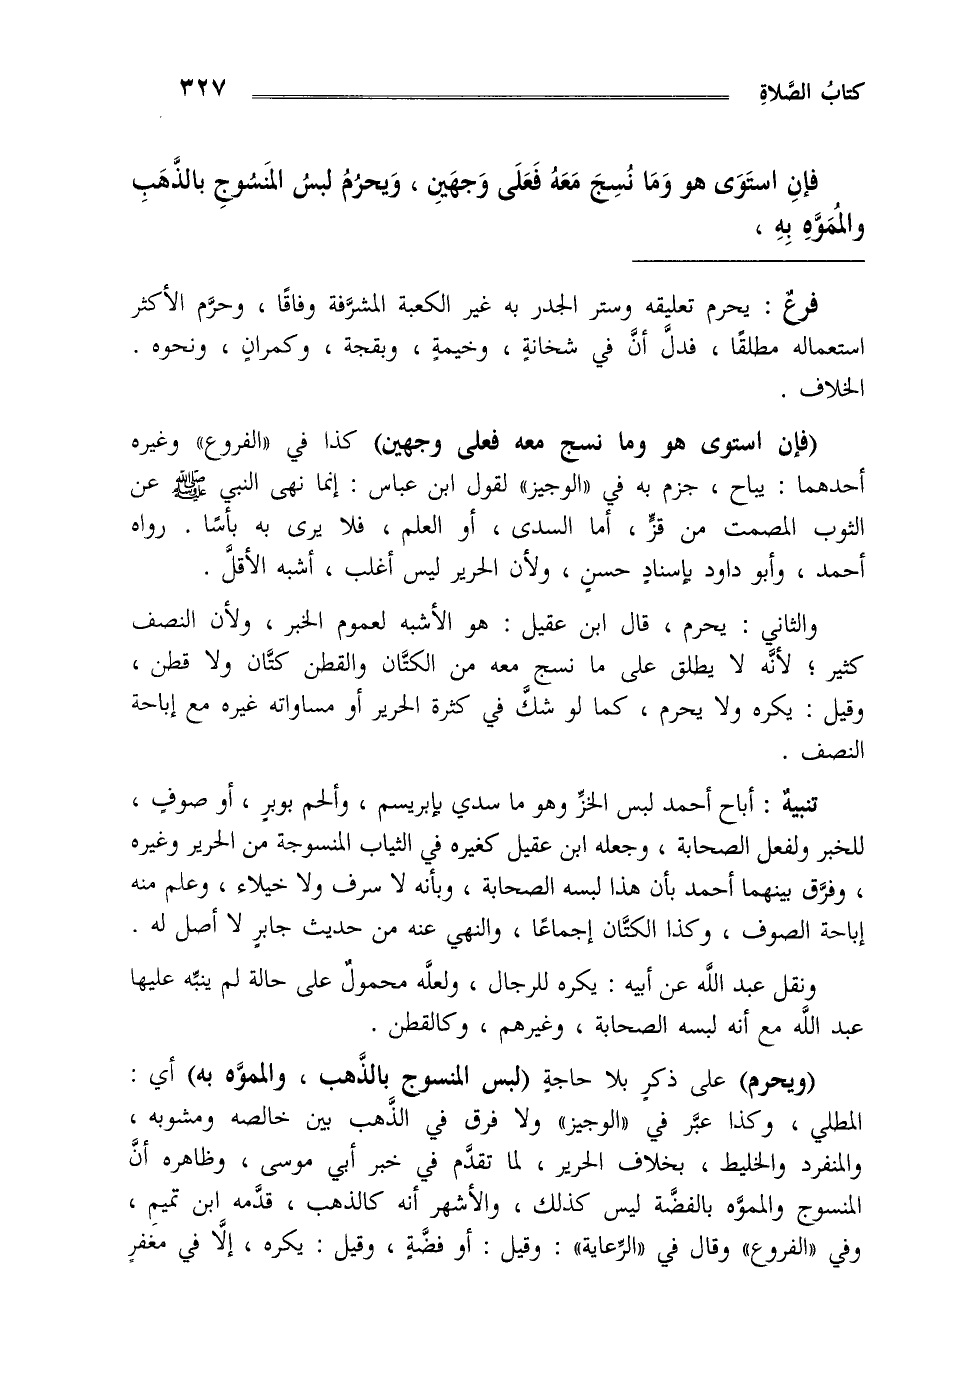 كتابُ الصَّلاةِ ٣٢٧
فإنِ استَوَى هو وَمَا نُسِجَ مَعَهُ فَعَلَى وَجهَينِ ، وَيحرُمُ لبسُ المَنسُوجِ بالذَّهَبِ
والمُمَوَّهِ بِهِ ،
فرعٌ : يحرم تعليقه وستر الجدر به غير الكعبة المشرَّفة وفاقًا ، وحرَّم الأكثر
استعماله مطلقًا ، فدلَّ أنَّ في شخانةٍ ، وخيمةٍ ، وبقجة ، وكمرانٍ ، ونحوه .
الخلاف .
(فإن استوى هو وما نسج معه فعلى وجهين) كذا في «الفروع» وغيره
أحدهما : يباح ، جزم به في «الوجيز» لقول ابن عباس : إنما نهى النبي ﷺ عن
الثوب المصمت من قزٍّ ، أما السدى ، أو العلم ، فلا يرى به بأسًا . رواه
أحمد ، وأبو داود بإسنادٍ حسنٍ ، ولأن الحرير ليس أغلب ، أشبه الأقلَّ .
والثاني : يحرم ، قال ابن عقيل : هو الأشبه لعموم الخبر ، ولأن النصف
كثير ؛ لأنَّه لا يطلق على ما نسج معه من الكتَّان والقطن كتَّان ولا قطن ،
وقيل : يكره ولا يحرم ، كما لو شكَّ في كثرة الحرير أو مساواته غيره مع إباحة
النصف .
تنبيهٌ : أباح أحمد لبس الخزِّ وهو ما سدي بإبريسم ، وألحم بوبرٍ ، أو صوفٍ ،
للخبر ولفعل الصحابة ، وجعله ابن عقيل كغيره في الثياب المنسوجة من الحرير وغيره
، وفرَّق بينهما أحمد بأن هذا لبسه الصحابة ، وبأنه لا سرف ولا خيلاء ، وعلم منه
إباحة الصوف ، وكذا الكتَّان إجماعًا ، والنهي عنه من حديث جابرٍ لا أصل له .
ونقل عبد اللَّه عن أبيه : يكره للرجال ، ولعلَّه محمولٌ على حالة لم ينبِّه عليها
عبد اللَّه مع أنه لبسه الصحابة ، وغيرهم ، وكالقطن .
(ويحرم) على ذكرٍ بلا حاجةٍ (لبس المنسوج بالذَّهب ، والمموَّه به) أي :
المطلي ، وكذا عبَّر في «الوجيز» ولا فرق في الذَّهب بين خالصه ومشوبه ،
والمنفرد والخليط ، بخلاف الحرير ، لما تقدَّم في خبر أبي موسى ، وظاهره أنَّ
المنسوج والمموَّه بالفضَّة ليس كذلك ، والأشهر أنه كالذهب ، قدَّمه ابن تميم ،
وفي «الفروع» وقال في «الرِّعاية» : وقيل : أو فضَّةٍ ، وقيل : يكره ، إلَّا في مغفرٍ